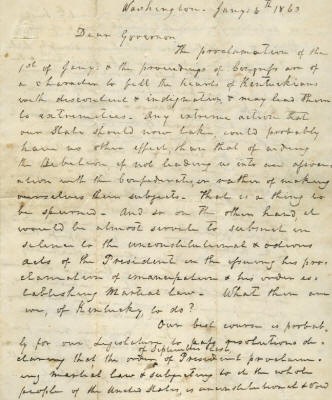 Washington. Jany. 6th 1863
Dear Governor
The proclamation of the
1st of Jany. & the proceedings of Congress are of
a character to fill the hearts of Kentuckians
with discontent & indignation & may lead them
to extremities. Any extreme action that
our State should now take, would probably
have no other effect, than that of aiding
the Rebellion if not leading us into an
ation with the Confederates, or rather of making
ourselves their subjects. That is a thing to
be spurned. And so on the other hand, it
would be almost servile to submit in
silence to the unconstitutional & odious
acts of the President in the issuing his pro-
clamation of emancipation & his order es-
tablishing Martial law. What then are
we, of Kentucky, to do?
Our best course is probab-
ly for our Legislature to pass resolutions de-
of September last
claring that the order of President proclaim-
ing martial law & subjecting to it the whole
people of the United States, is unconstitutional & void